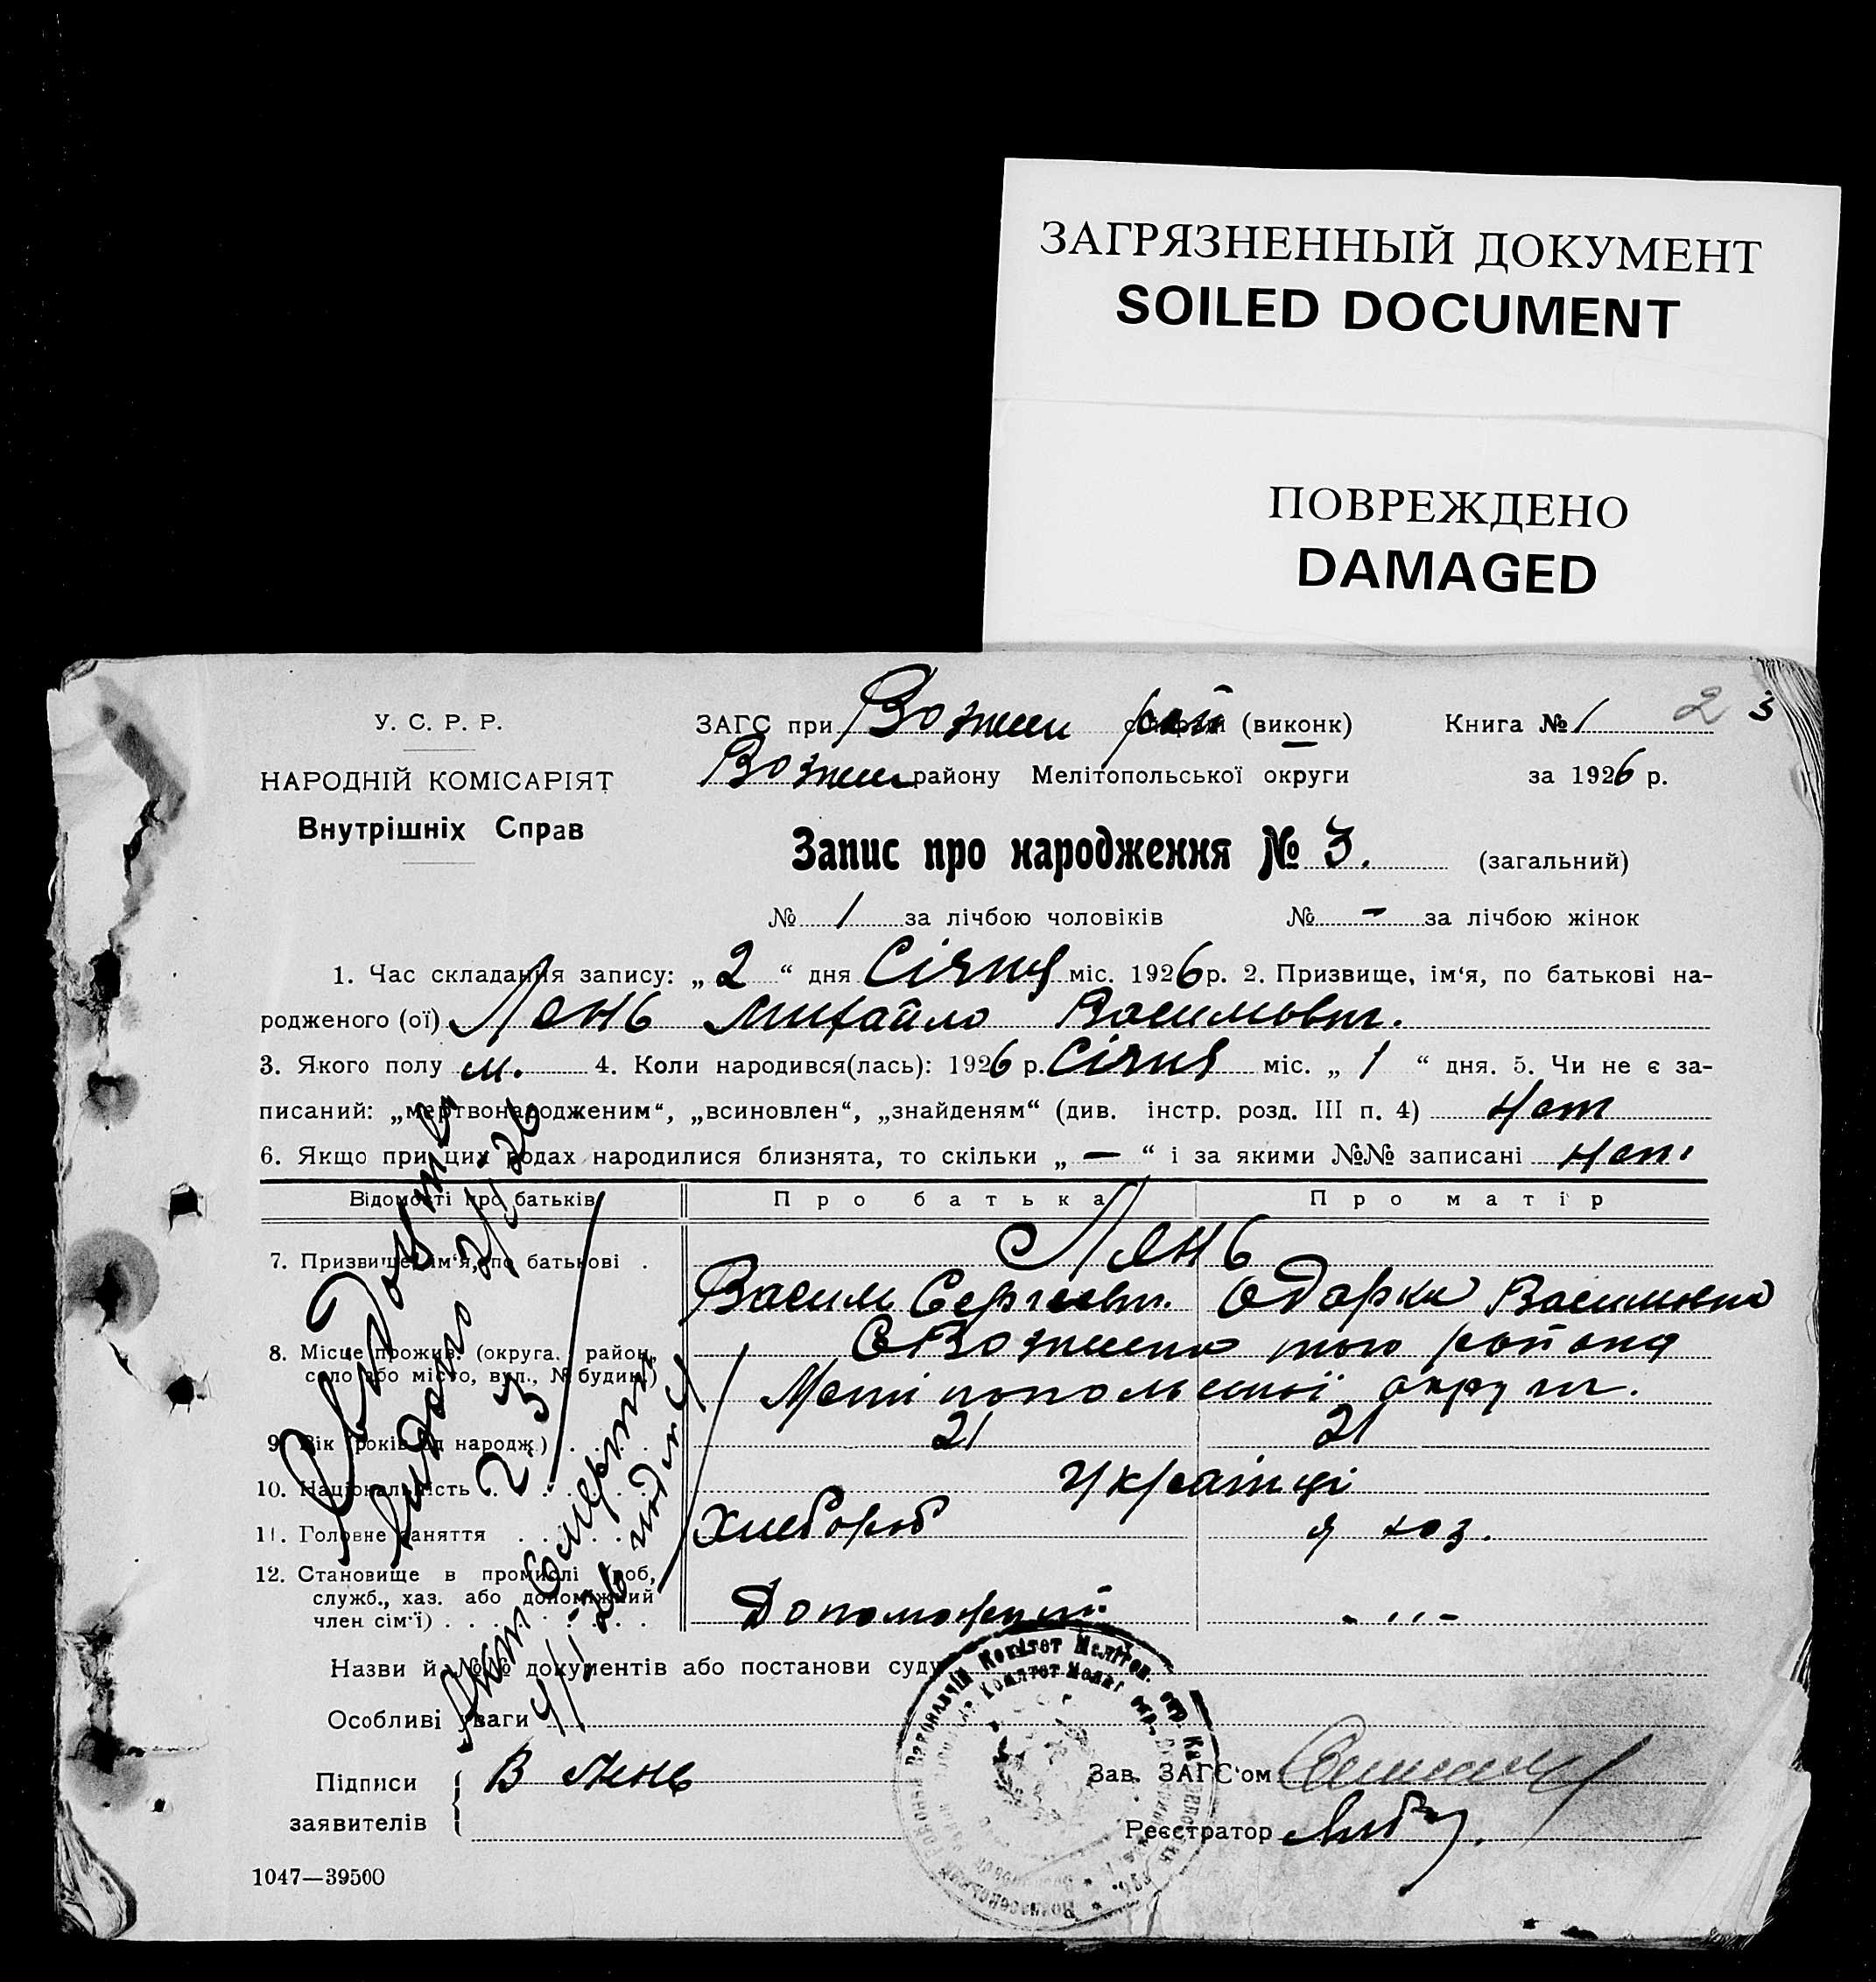 ЗАГРЯЗНЕННЫЙ ДОКУМЕНТ
SOILED DOCUMENT
ПОВРЕЖДЕНО
DAMAGED
2 3
У. С. Р. Р.
НАРОДНІЙ КОМІСАРІЯТ
Внутрішніх Справ
ЗАГС при рай (виконк) Книга № 1
району Мелітопольської округи за 1926 р.
Запис про народження № 3. (загальний)
№ 1 за лічбою чоловіків № - за лічбою жінок
1. Час складання запису: „2“ дня Січня міс. 1926 р. 2. Призвище, ім‘я, по батькові на-
родженого (ої) Лень Михайло Васильович.
3. Якого полу м. 4. Коли народився(лась): 1926 р. Січня міс. „1“ дня. 5. Чи не є за-
писаний: „мертвонародженим“, „всиновлен“, „знайденям“ (див. інстр. розд. III п. 4) нет
6. Якщо при цих родах народилися близнята, то скільки „—“ і за якими №№ записані нет.
Відомості про батьків Про батька Про матір
7. Призвище, ім‘я, по батькові . Лень
Васил Одарка Василівна
8. Місце прожив. (округа, район, того району
село або місто, вул., № будин.) Мелітопольської округи.
9. Вік (років від народж.) 21 21
10. Національність Українці
11. Головне заняття Хлебороб хоз.
12. Становище в промислі (роб,
служб., хаз. або допоміжний
член сім‘ї) Допоможний - ,, -
Назви й №№ документів або постанови суду
Особливі уваги
Підписи В Лень Зав. ЗАГС‘ом
заявителів Реєстратор
1047—39500
Видано 2/I 26
23
Акт Смерти
4/I 26